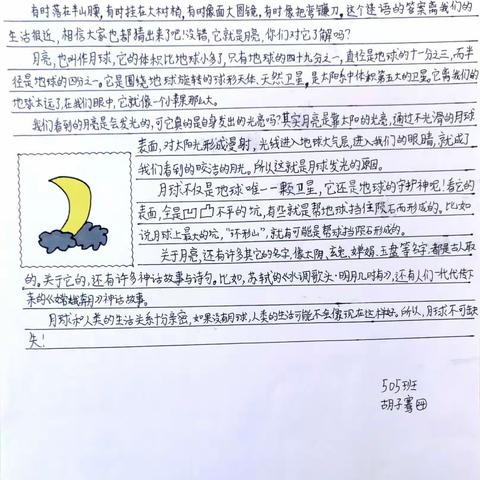 有时落在半山腰,有时挂在大树梢,有时像面大圆镜,有时像把弯镰刀。这个谜语的答案离我们的
生活很近,相信大家也都猜出来了吧!没错,它就是月亮,你们对它了解吗?
月亮,也叫作月球,它的体积比地球小多了,只有地球的四十九分之一,直径是地球的十一分之三,而半
径是地球的四分之一。它是围绕地球旋转的球形天体、天然卫星,是太阳系中体积第五大的卫星。它离我们的
地球太远了,在我们眼中,它就像一个小棵那么大。
我们看到的月亮是会发光的,可它真的是自身发出的光亮吗?其实月亮是靠太阳的光亮,通过不光滑的月球
表面,对太阳光形成漫射,光线进入地球大气层,进入我们的眼睛,就成了
我们看到的皎洁的月光。所以这就是月球发光的原因。
月球不仅是地球唯一一颗卫星,它还是地球的守护神呢!看它的
表面,全是凹凸不平的坑,有些就是帮地球挡住陨石而形成的。比如
说月球上最大的坑,"环形山",就有可能是帮球挡陨石形成的。
关于月亮,还有许多其它的名字,像太阴、玄兔、婵娟、玉盘等名字,都是古人取
的。关于它的,还有许多神话故事与诗句。比如,苏轼的《水调歌头·明月几时有》,还有人们一代代传下
来的《嫦娥奔月》神话故事。
月球和人类的生活关系十分亲密,如果没有月球,人类的生活可能不会像现在这样好。所以,月球不可缺
失!
505班
胡子骞